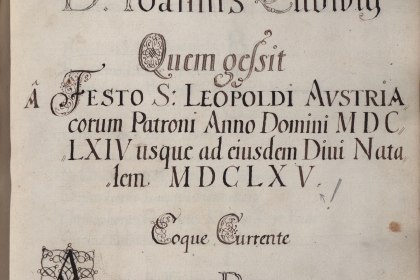 D. Ioannis Ludwig
Quem gessit
Â FESTO S: LEOPOLDI AVSTRIA
corum Patroni Anno Domini MDC
LXIV usque ad eiusdem Divi Nata
lem. MDCLXV.
Eoque Currente